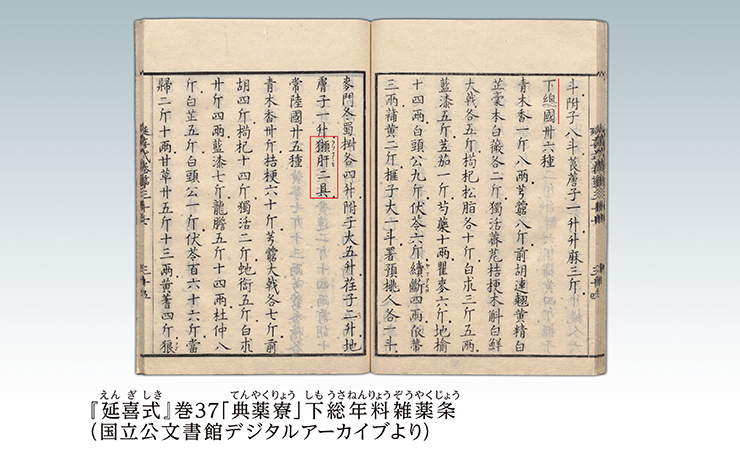 斗附子八斗莨蓎子一升升麻三斤
下總國卅六種
青木香一斤八兩芎藭八斤前胡連翹黄精白
芷藁本白薇各二斤獨活蕘花桔梗木斛白鮮
大戟各五斤枸杞松脂各十斤白朮三斤五兩
藍漆五斤茄一斤芍藥十兩瞿麥六斤地楡
十四兩白頭公九斤伏苓六斤續斷四兩
三兩蒲黄二斤榧子大一斗署預桃人各一斗
麥門冬蜀椒各四升附子大五升荏子二升地
膚子一升獺肝二具
常陸國廿五種
青木香卅斤桔梗六十斤芎藭大戟各七斤前
胡四斤枸杞十四斤獨活二斤虵銜五斤白朮
廿斤四兩藍漆七斤龍膽五斤十四兩杜仲八
斤白芷五斤白頭公一斤伏苓百六十六斤當
歸二斤十兩甘草廿五斤十三兩黄蓍四斤狼
えんぎしき てんやくりょう しもうさねんりょうぞうやくじょう
『延喜式』巻37「典薬寮」下総年料雑薬条
（国立公文書館デジタルアーカイブより）